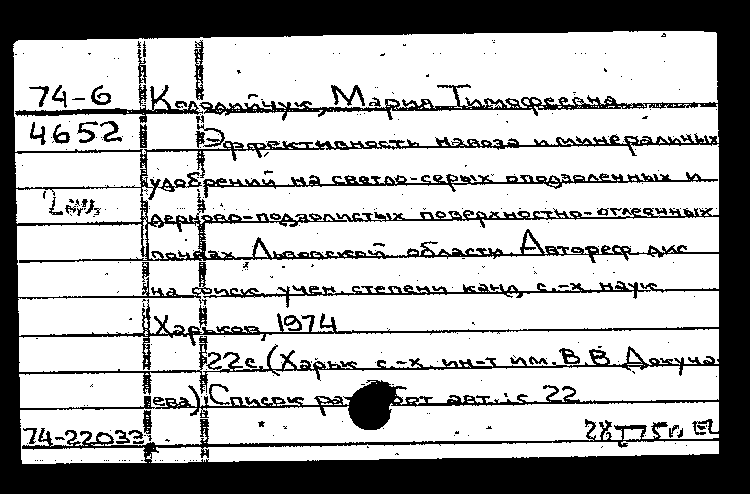 74-6 Колодийчук, Мария Тимофеевна
4652 Эффективность навоза и минеральных
удобрений на светло-серых оподзоленных и
2 дерново-подзолистых поверхностно-оглеенных
почвах Львовской области. Автореф дис
на соиск учен. степени канд. с.-х. наук.
Харьков, 1974
22с. (Харьк с.-х. ин-т им. В.В. Докуча-
ева) Список работ авт.: с 22
74-22033